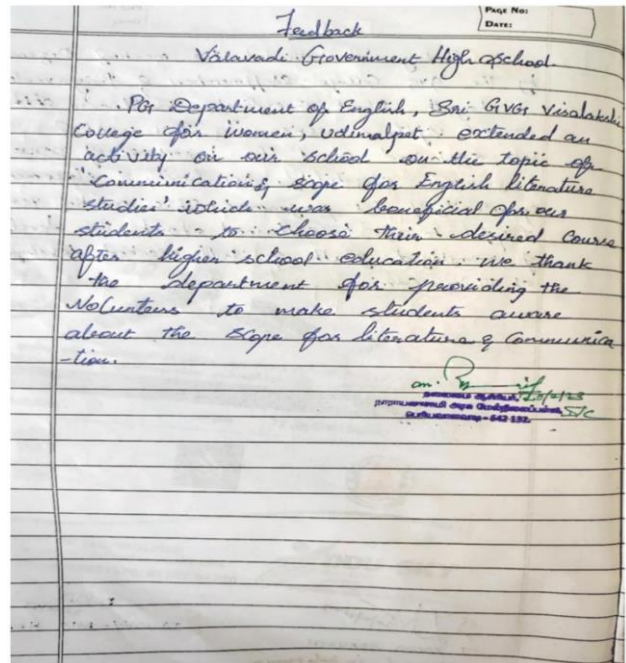 PAGE NO:
DATE:
Feedback
Valavadi Government High School.
PG Department of English, Sri GVG Visalakshi
College for women, Udumalpet extended an
activity on our school on the topic of
"Communication & scope for English literature
studies' which was beneficial for our
students to choose their desired course
after higher school education. we thank
the department for providing the
Volunteers to make students aware
about the scope for literature & Communica
-tion.
தலைமை ஆசிரியர்,
அரசு மேல்நிலைப்பள்ளி,
- 642 132.